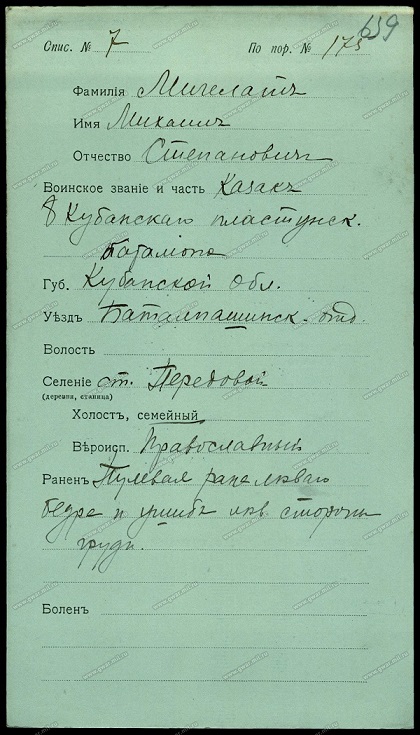 659
Спис. № 7 По пор. № 175
Фамилія Мигелатъ
Имя Михаилъ
Отчество Степановичъ
Воинское званіе и часть Казакъ
8 Кубанскаго пластунск.
баталіона
Губ. Кубанской обл.
Уѣздъ Баталпашинск. отд.
Волость
Селеніе ст. Передовой
(деревня, станица)
Холостъ, семейный
Вѣроисп. Православный
Раненъ Пулевая рана лѣваго
бедра и ушибъ лѣв. стороны
груди.
Боленъ